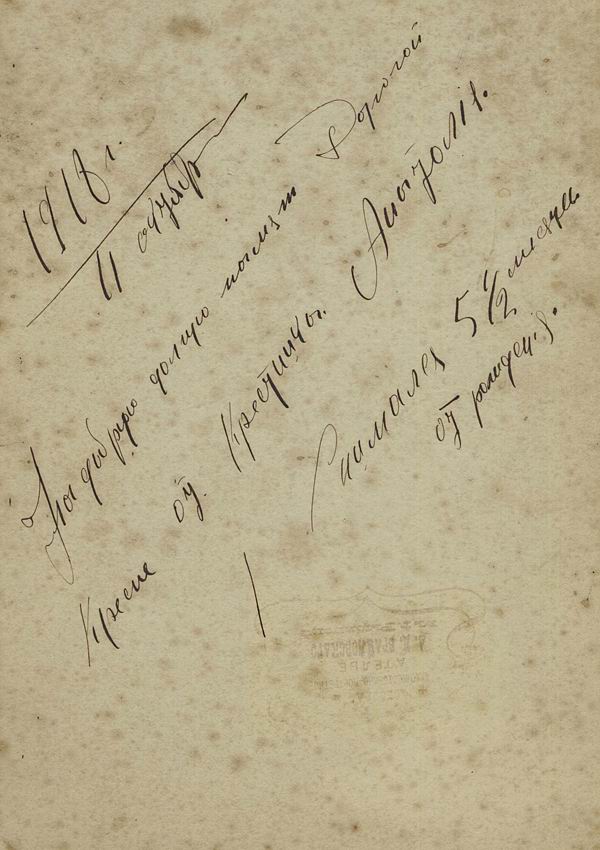 1918 г.
11 октября
На добрую долгую память Дорогой
Кресне от Крестницы. Анатолія.
Снималась 5 1/2 месяцы
от рожден.